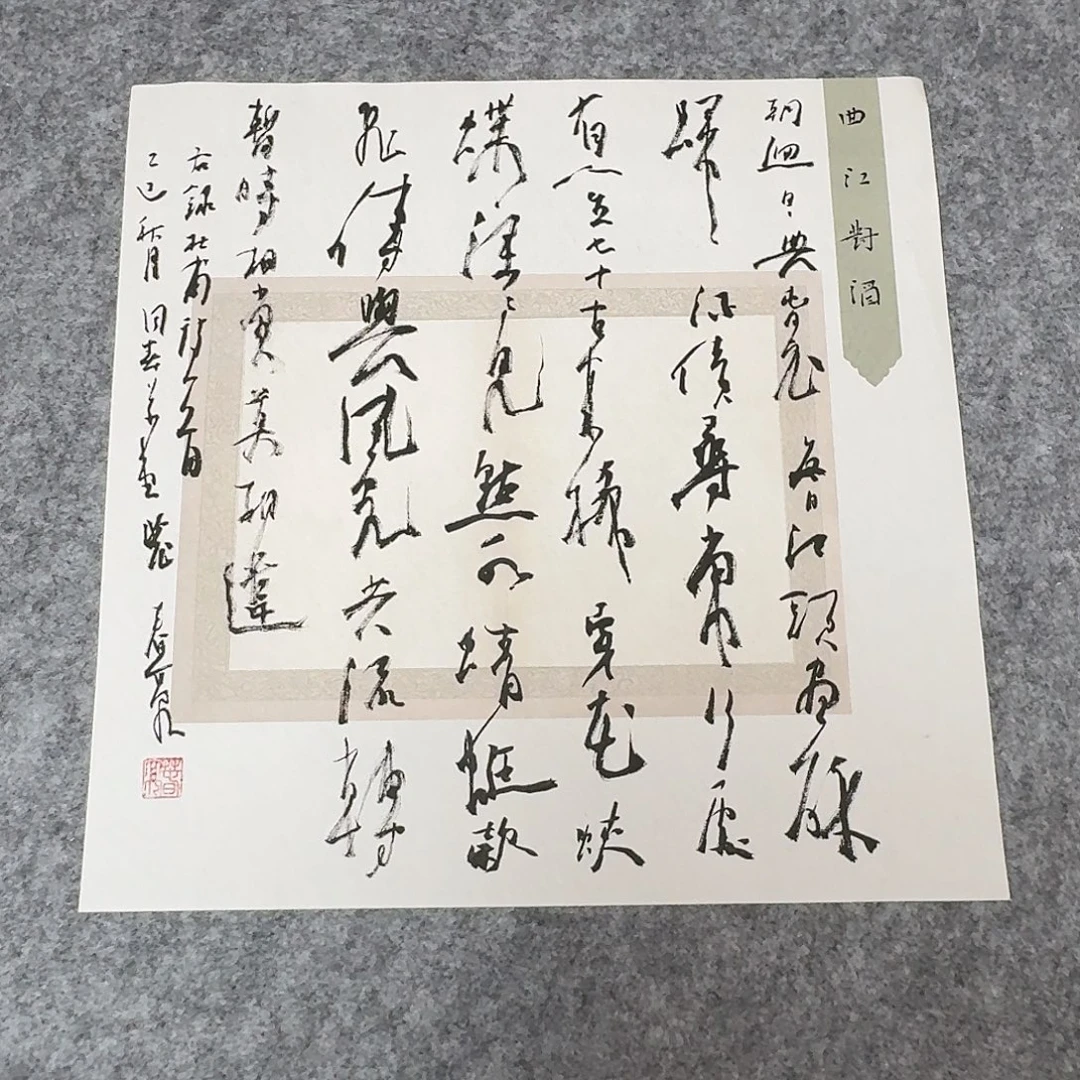 曲江對酒
朝迴日々典春衣每日江頭盡醉
歸酒債尋常行處
有人生七十古來稀穿花蛺
蝶深々見點水蜻蜓款
飛傳與風光共流轉
暫時相賞莫相違
右錄杜甫詩一首
乙巳秋月田春